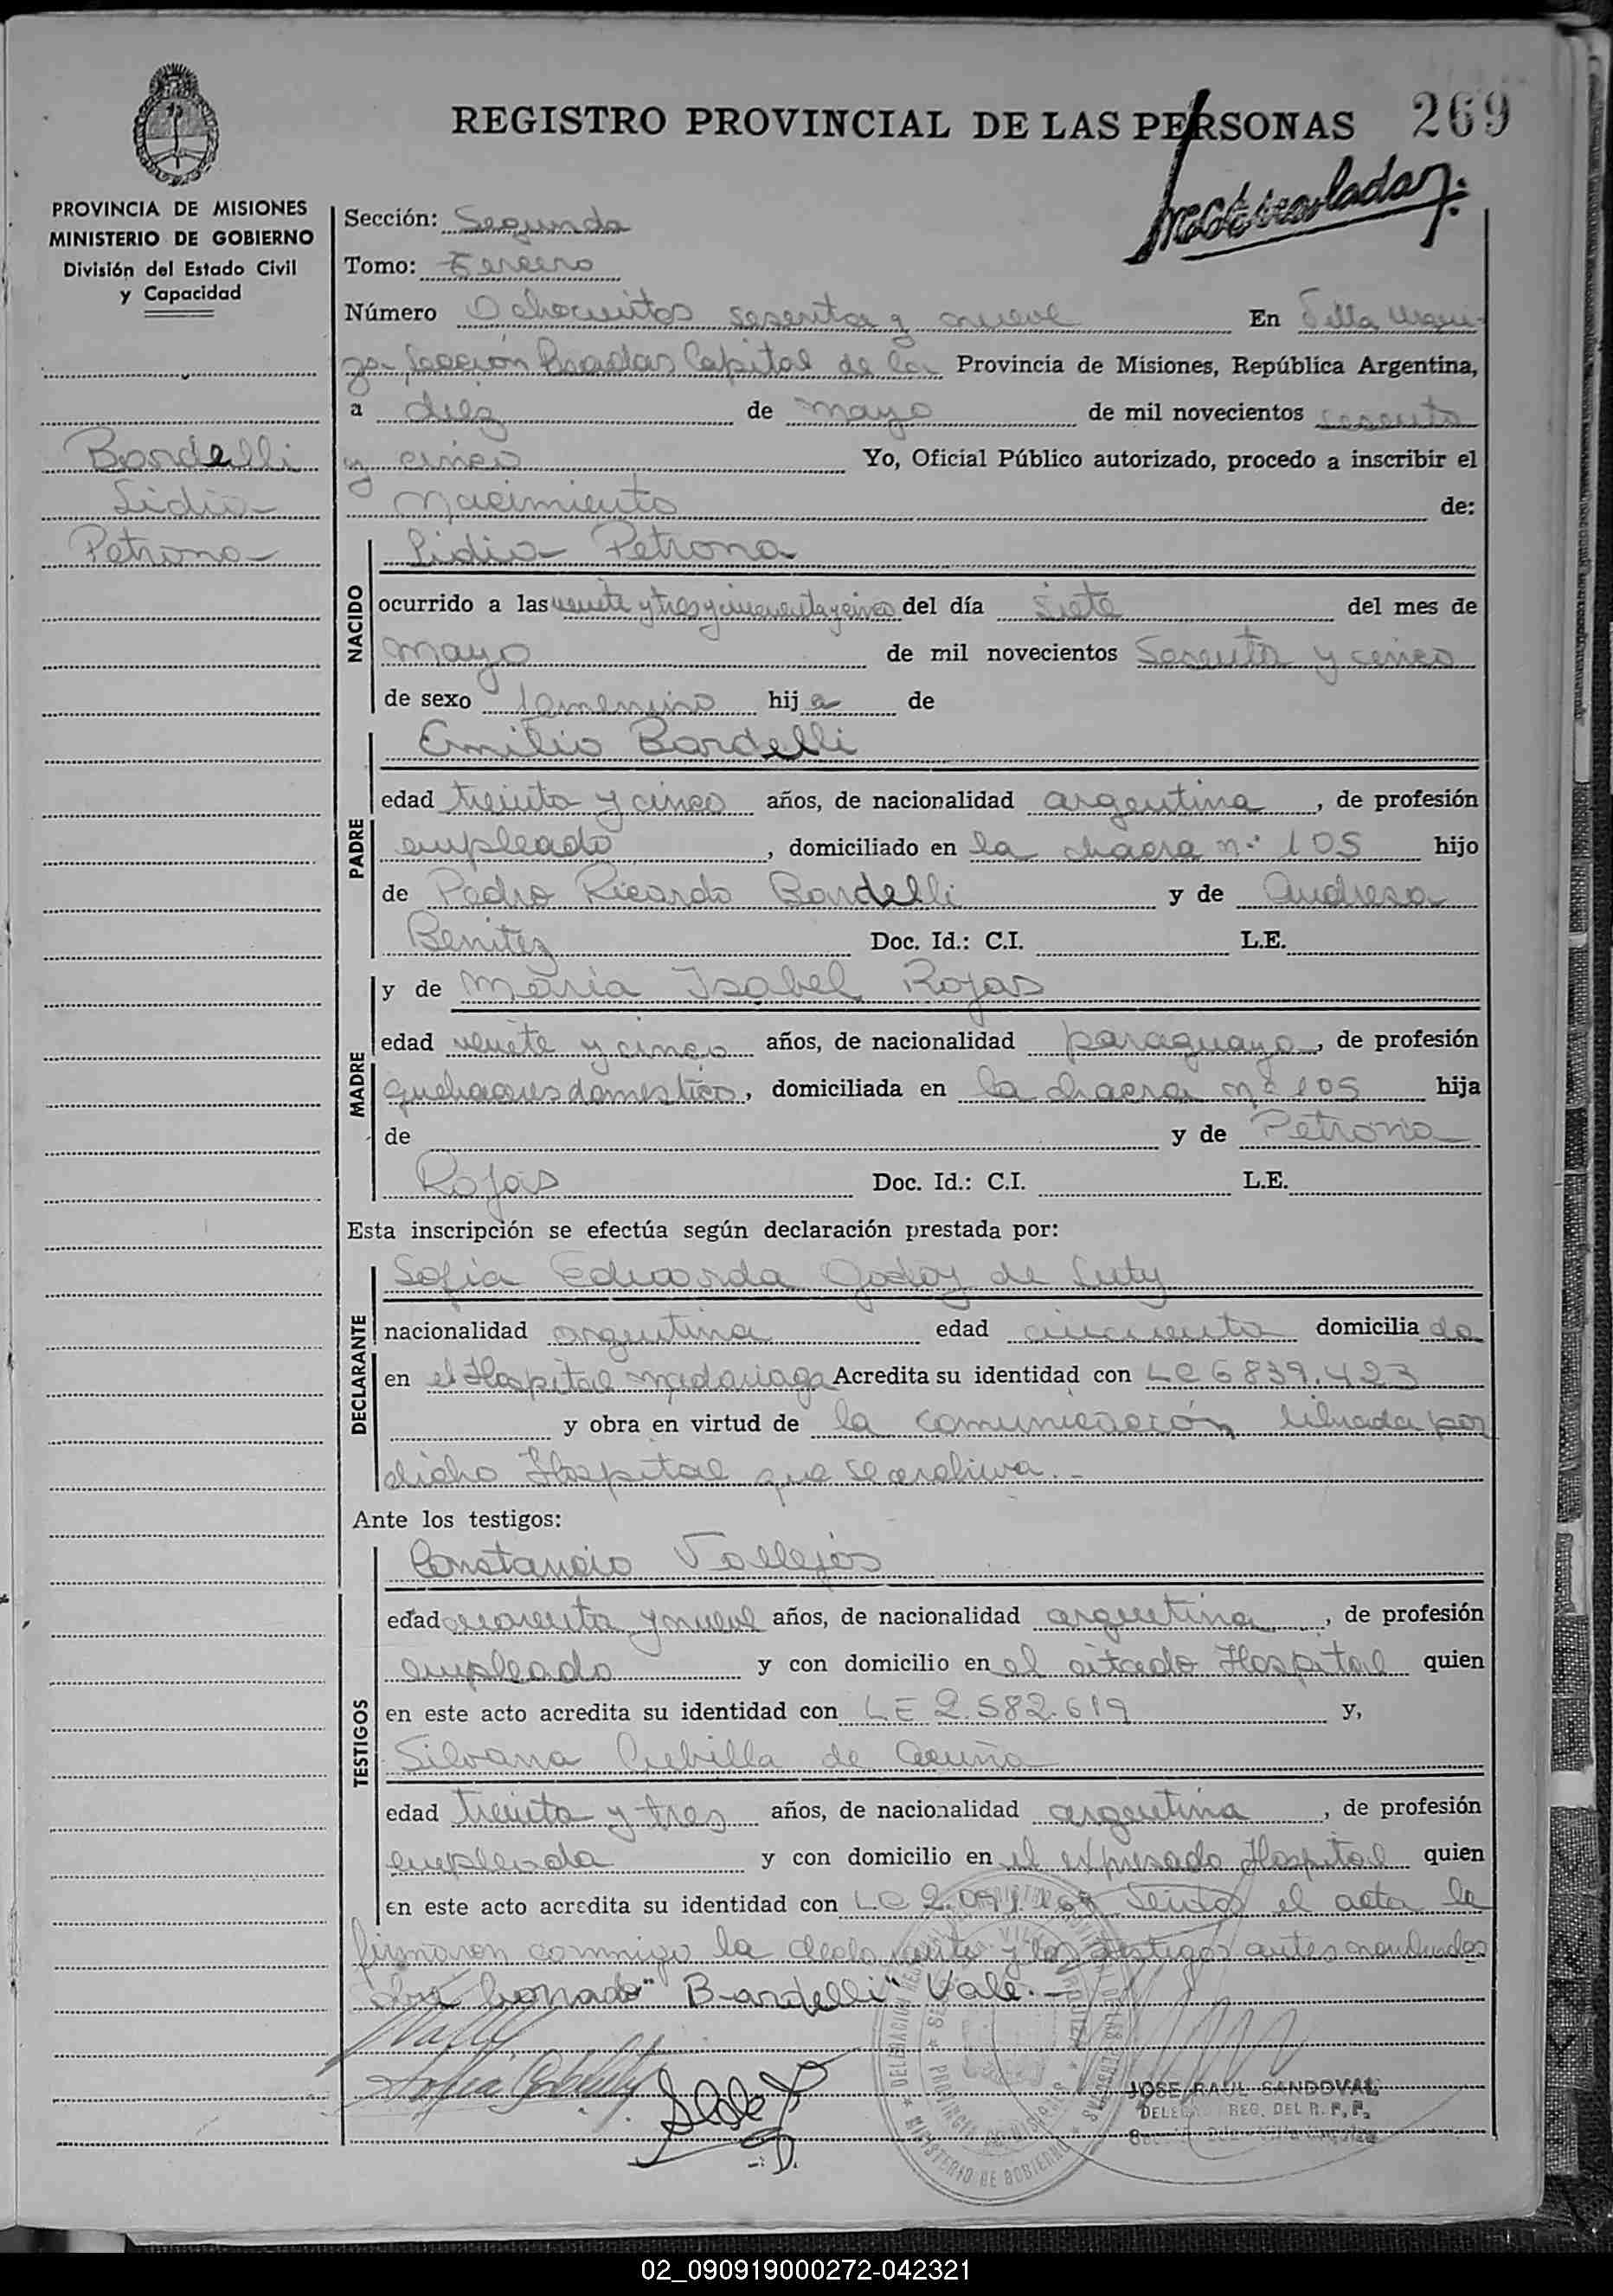 REGISTRO PROVINCIAL DE LAS PERSONAS 269
PROVINCIA DE MISIONES
MINISTERIO DE GOBIERNO
División del Estado Civil
y Capacidad
Bardelli
Lidia
Petrona
Sección: Segunda
Tomo: Tercero
Número Ochocientos sesenta y nueve En Villa Urqui-
za, Sección Posadas Capital de la Provincia de Misiones, República Argentina,
a diez de mayo de mil novecientos sesenta
y cinco Yo, Oficial Público autorizado, procedo a inscribir el
Nacimiento de:
NACIDO
Lidia Petrona
ocurrido a las veinte y tres y cincuenta y cinco del día siete del mes de
mayo de mil novecientos sesenta y cinco
de sexo femenino hij a de
PADRE
Emilio Bardelli
edad treinta y cinco años, de nacionalidad argentina, de profesión
empleado, domiciliado en la chacra n.º 105 hijo
de Pedro Ricardo Bardelli y de Andresa
Benitez Doc. Id.: C.I. L.E.
MADRE
y de Maria Isabel Rojas
edad veinte y cinco años, de nacionalidad paraguaya, de profesión
quehaceres domesticos, domiciliada en la chacra nº 105 hija
de y de Petrona
Rojas Doc. Id.: C.I. L.E.
Esta inscripción se efectúa según declaración prestada por:
DECLARANTE
Sofia Eduarda Godoy de Luty
nacionalidad argentina edad cincuenta domicilia da
en el Hospital Madariaga Acredita su identidad con LC 6839.423
y obra en virtud de la comunicación librada por
dicho Hospital que se archiva.-
Ante los testigos:
TESTIGOS
Constancio Vallejos
edad cuarenta y nueve años, de nacionalidad argentina, de profesión
empleado y con domicilio en el citado Hospital quien
en este acto acredita su identidad con LE 2.582.619 y,
Silvana Cubilla de Acuña
edad treinta y tres años, de nacionalidad argentina, de profesión
empleada y con domicilio en el expresado Hospital quien
en este acto acredita su identidad con LC el acta la
firmaron conmigo la declarante y los testigos antes nombrados
"Bardelli" Vale.-
JOSE RAUL SANDOVAL
REG. DEL R. P. P.
MINISTERIO DE GOBIERNO
PROVINCIA DE MISIONES
02_090919000272-042321